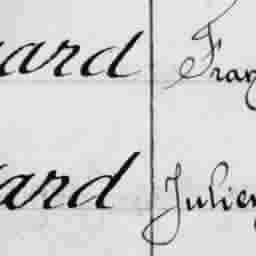 ard Fran
ard Julien